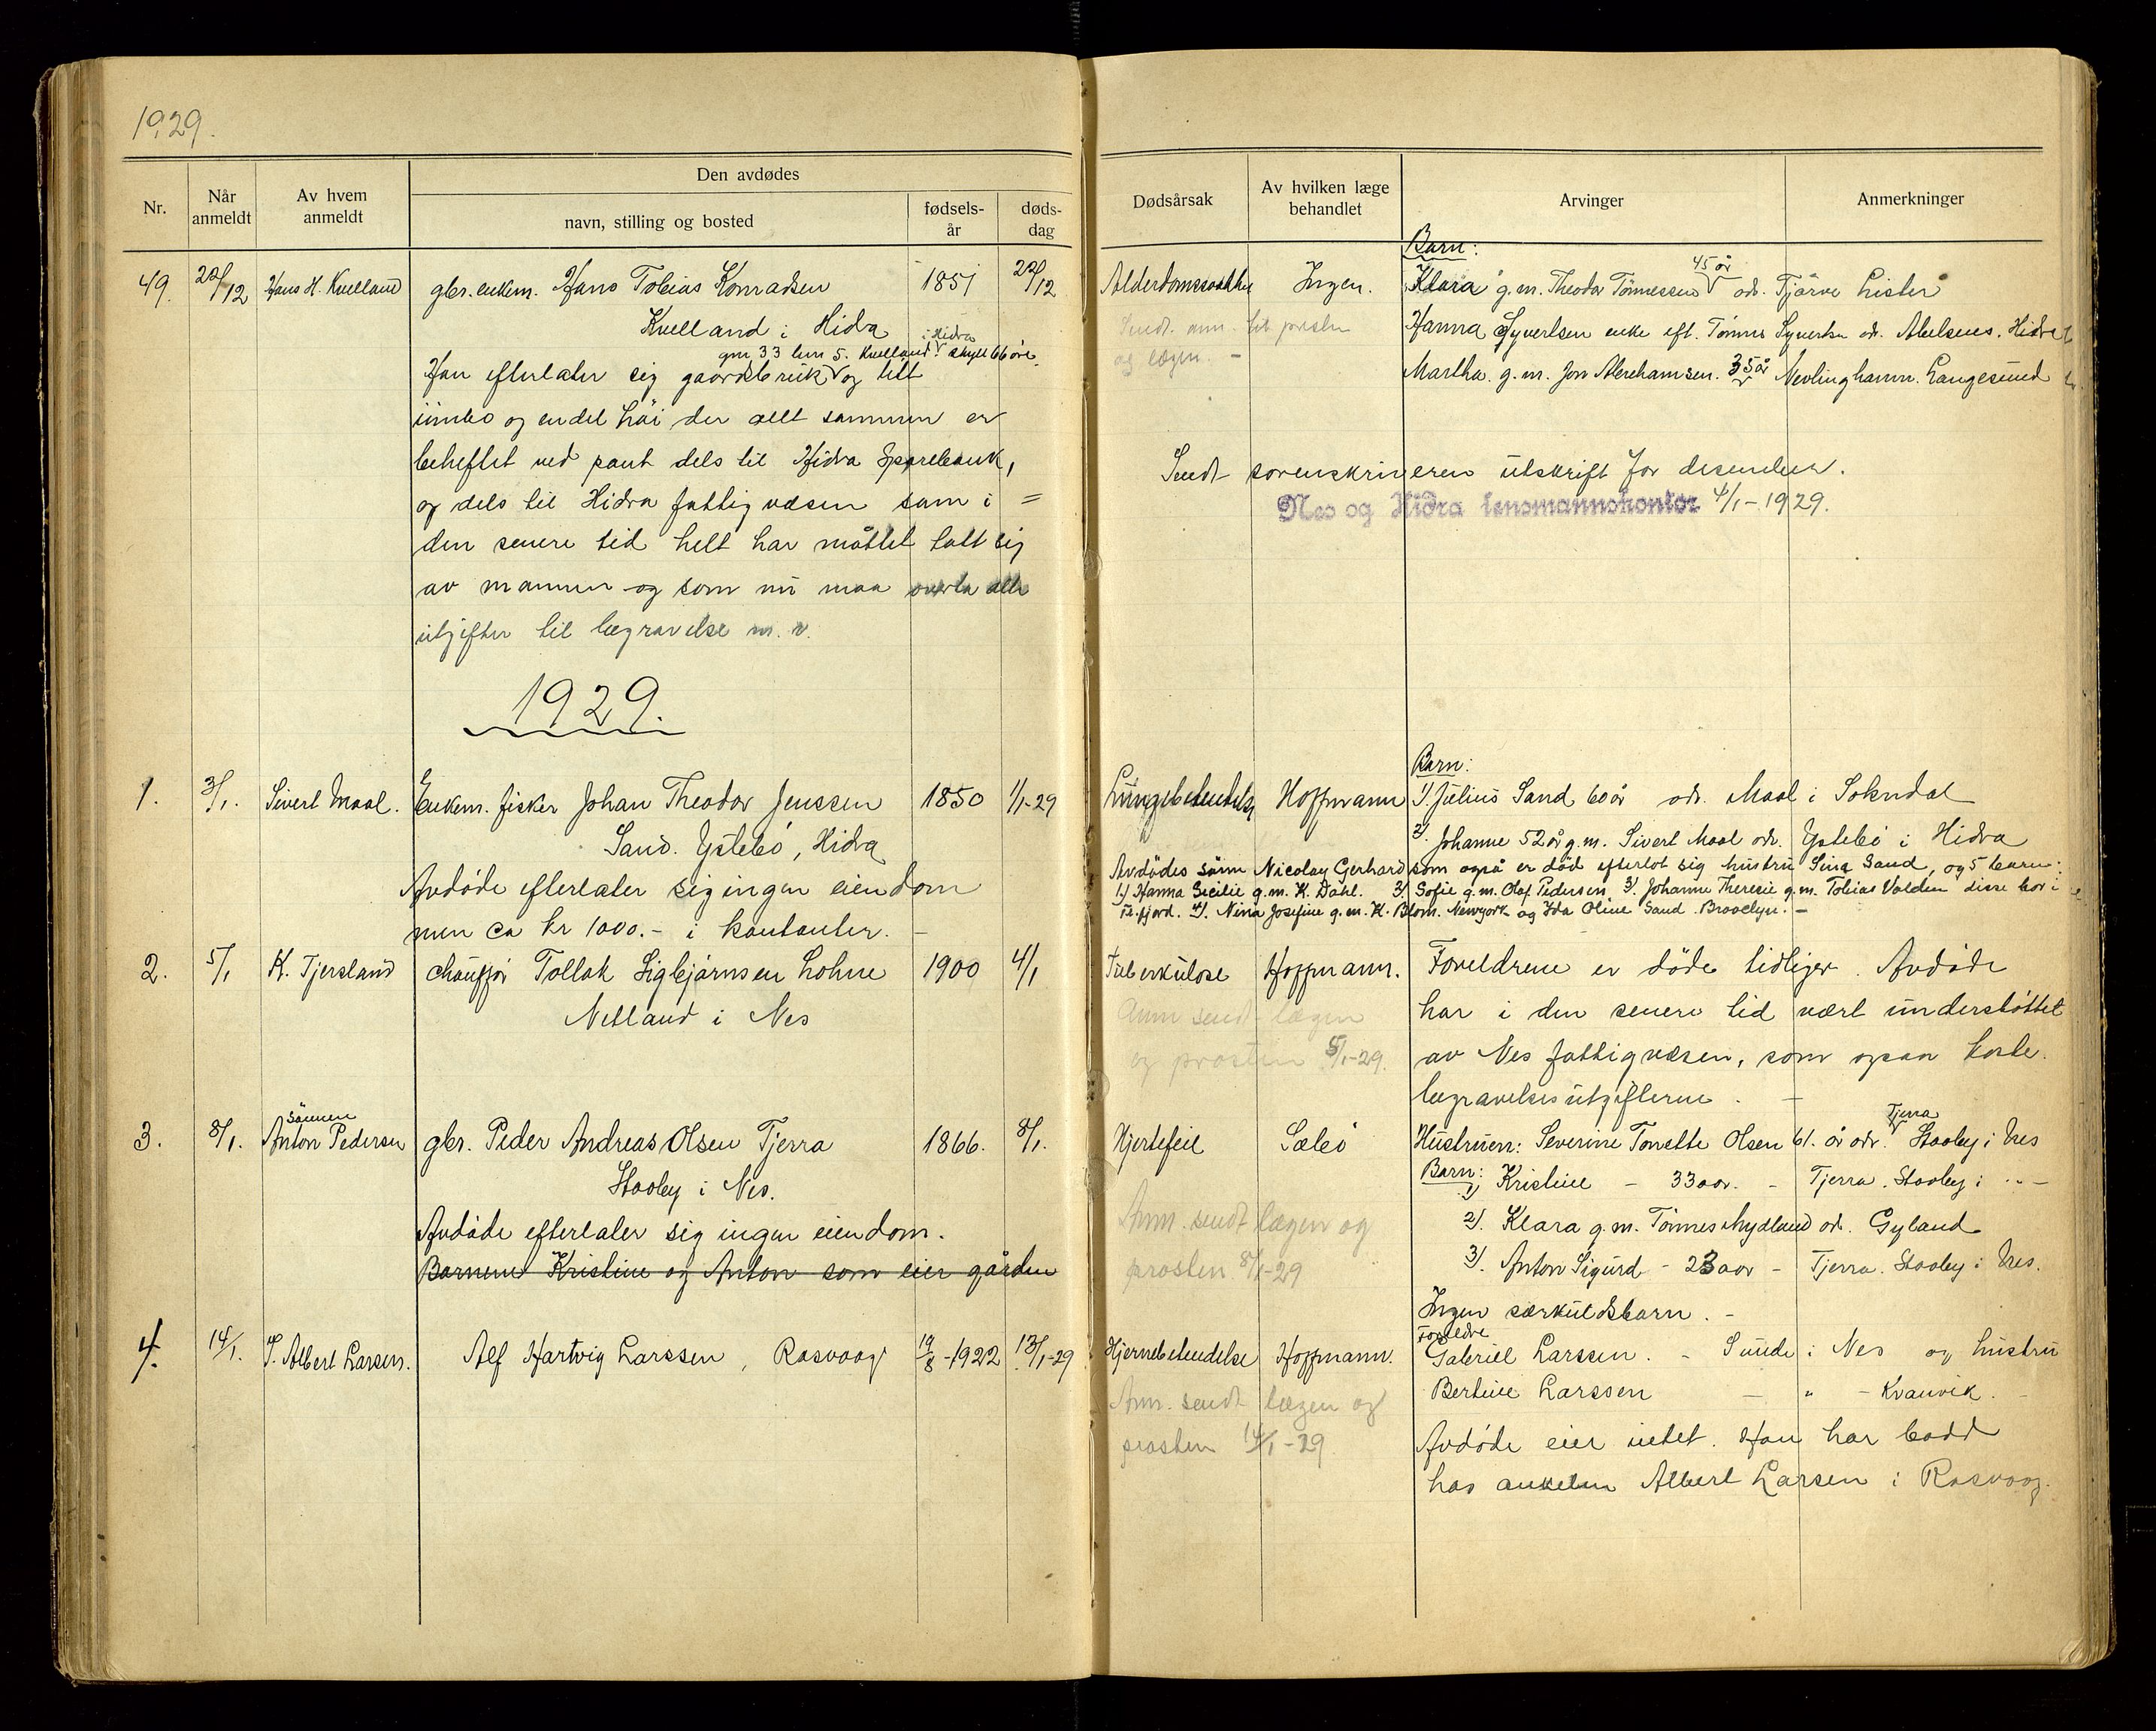 1929.
Nr.
Når anmeldt
Av hvem anmeldt
Den avdødes
navn, stilling og bosted
fødsels-år
døds-dag
Dødsårsak
Av hvilken læge behandlet
Arvinger
Anmerkninger
49. 22/12 Hans H. Kvelland gbr. enkem. Hans Tobias Konradsen 1851 22/12
Kvelland i Hidra
gnr. 33 bnr 5. Kvelland i Hidra skyld 66 øre.
Han efterlater sig gaardsbruk og litt
innbo og endel høi der allt sammen er
beheftet ved pant dels til Hidra Sparebank,
og dels til Hidra fattigvæsen som i =
den senere tid helt har måttet tatt sig
av mannen og som nu maa overta alle
utgifter til begravelse m. v.
Alderdomssvakhet Ingen.
Sendt ann. til presten
og lægen. -
Barn:
Klara g.m. Theodor Tönnessen 45 år adr. Tjörve Lister
Hanna Syvertsen enke eft. Tønnes Syvertsen adr. Abelsnes. Hidra
Martha. g.m. Jon Abrahamsen. 35 år Nevlinghavn. Langesund
Sendt sorenskriveren utskrift for desember.
Nes og Hidra lensmannskontor 4/1-1929.
1929.
1. 3/1. Sivert Maal. Enkem. fisker Johan Theodor Jenssen 1850 1/1-29
Sand. Ystebö, Hidra
Avdøde efterlater sig ingen eiendom
men ca kr 1000.- i kontanter. -
Lungebetendelse Hoffmann
Barn:
1). Julius Sand 60 år adr. Maal i Sokndal
2). Johanne 52 år g.m. Sivert Maal adr. Ystebö i Hidra
Avdödes sönn Nicolay Gerhard som også er död efterlot sig hustru Sina Sand, og 5 barn:
1) Hanna Secilie g.m. K. Dahl. 2) Sofie g.m. Olaf Pedersen 3). Johanne Theresie g.m. Tobias Valden disse bor i
Fl.fjord. 4). Nina Josefine g.m. K. Blom. Newyork og Ida Oline Sand. Brooclyn. -
2. 5/1 K. Tjersland chauffør Tollak Sigbjørnsen Lohne 1900 4/1
Netland i Nes
Tuberkulose Hoffmann.
Anm sendt lægen
og prosten 5/1-29.
Foreldrene er döde tidliger. Avdøde
har i den senere tid vært understöttet
av Nes fattigvæsen, som ogsaa koste.
begravelsesutgifterne. -
3. 8/1. sönnen Anton Pedersen gbr. Peder Andreas Olsen Tjerra 1866. 8/1.
Stooley i Nes.
Avdöde efterlater sig ingen eiendom.
Barnene Kristine og Anton som eier gården
Hjertefeil Salbö
Anm. sendt lægen og
prosten 8/1-29
Hustruen: Severine Tonette Olsen 61. år adr. Tjerra Stooley i Nes
Barn:
1) Kristine - 33 aar. - Tjerra. Stooley i " -
2). Klara g.m. Tönnes Mydland adr. Gyland
3). Anton Sigurd - 23 aar - Tjerra. Stooley i Nes.
Ingen særkuldsbarn. -
4. 14/1. T. Albert Larsen. Alf Hartvig Larssen, Rasvaag 19/8-1922 13/1-29
Hjernebetendelse Hoffmann.
Anm. sendt lægen og
prosten 14/1-29.
Foreldre
Gabriel Larssen. - Sunde i Nes og hustru
Bertine Larssen - " - Kvanvik. -
Avdöde eier intet. Han har bodd
hos onkelen Albert Larsen i Rasvaag.